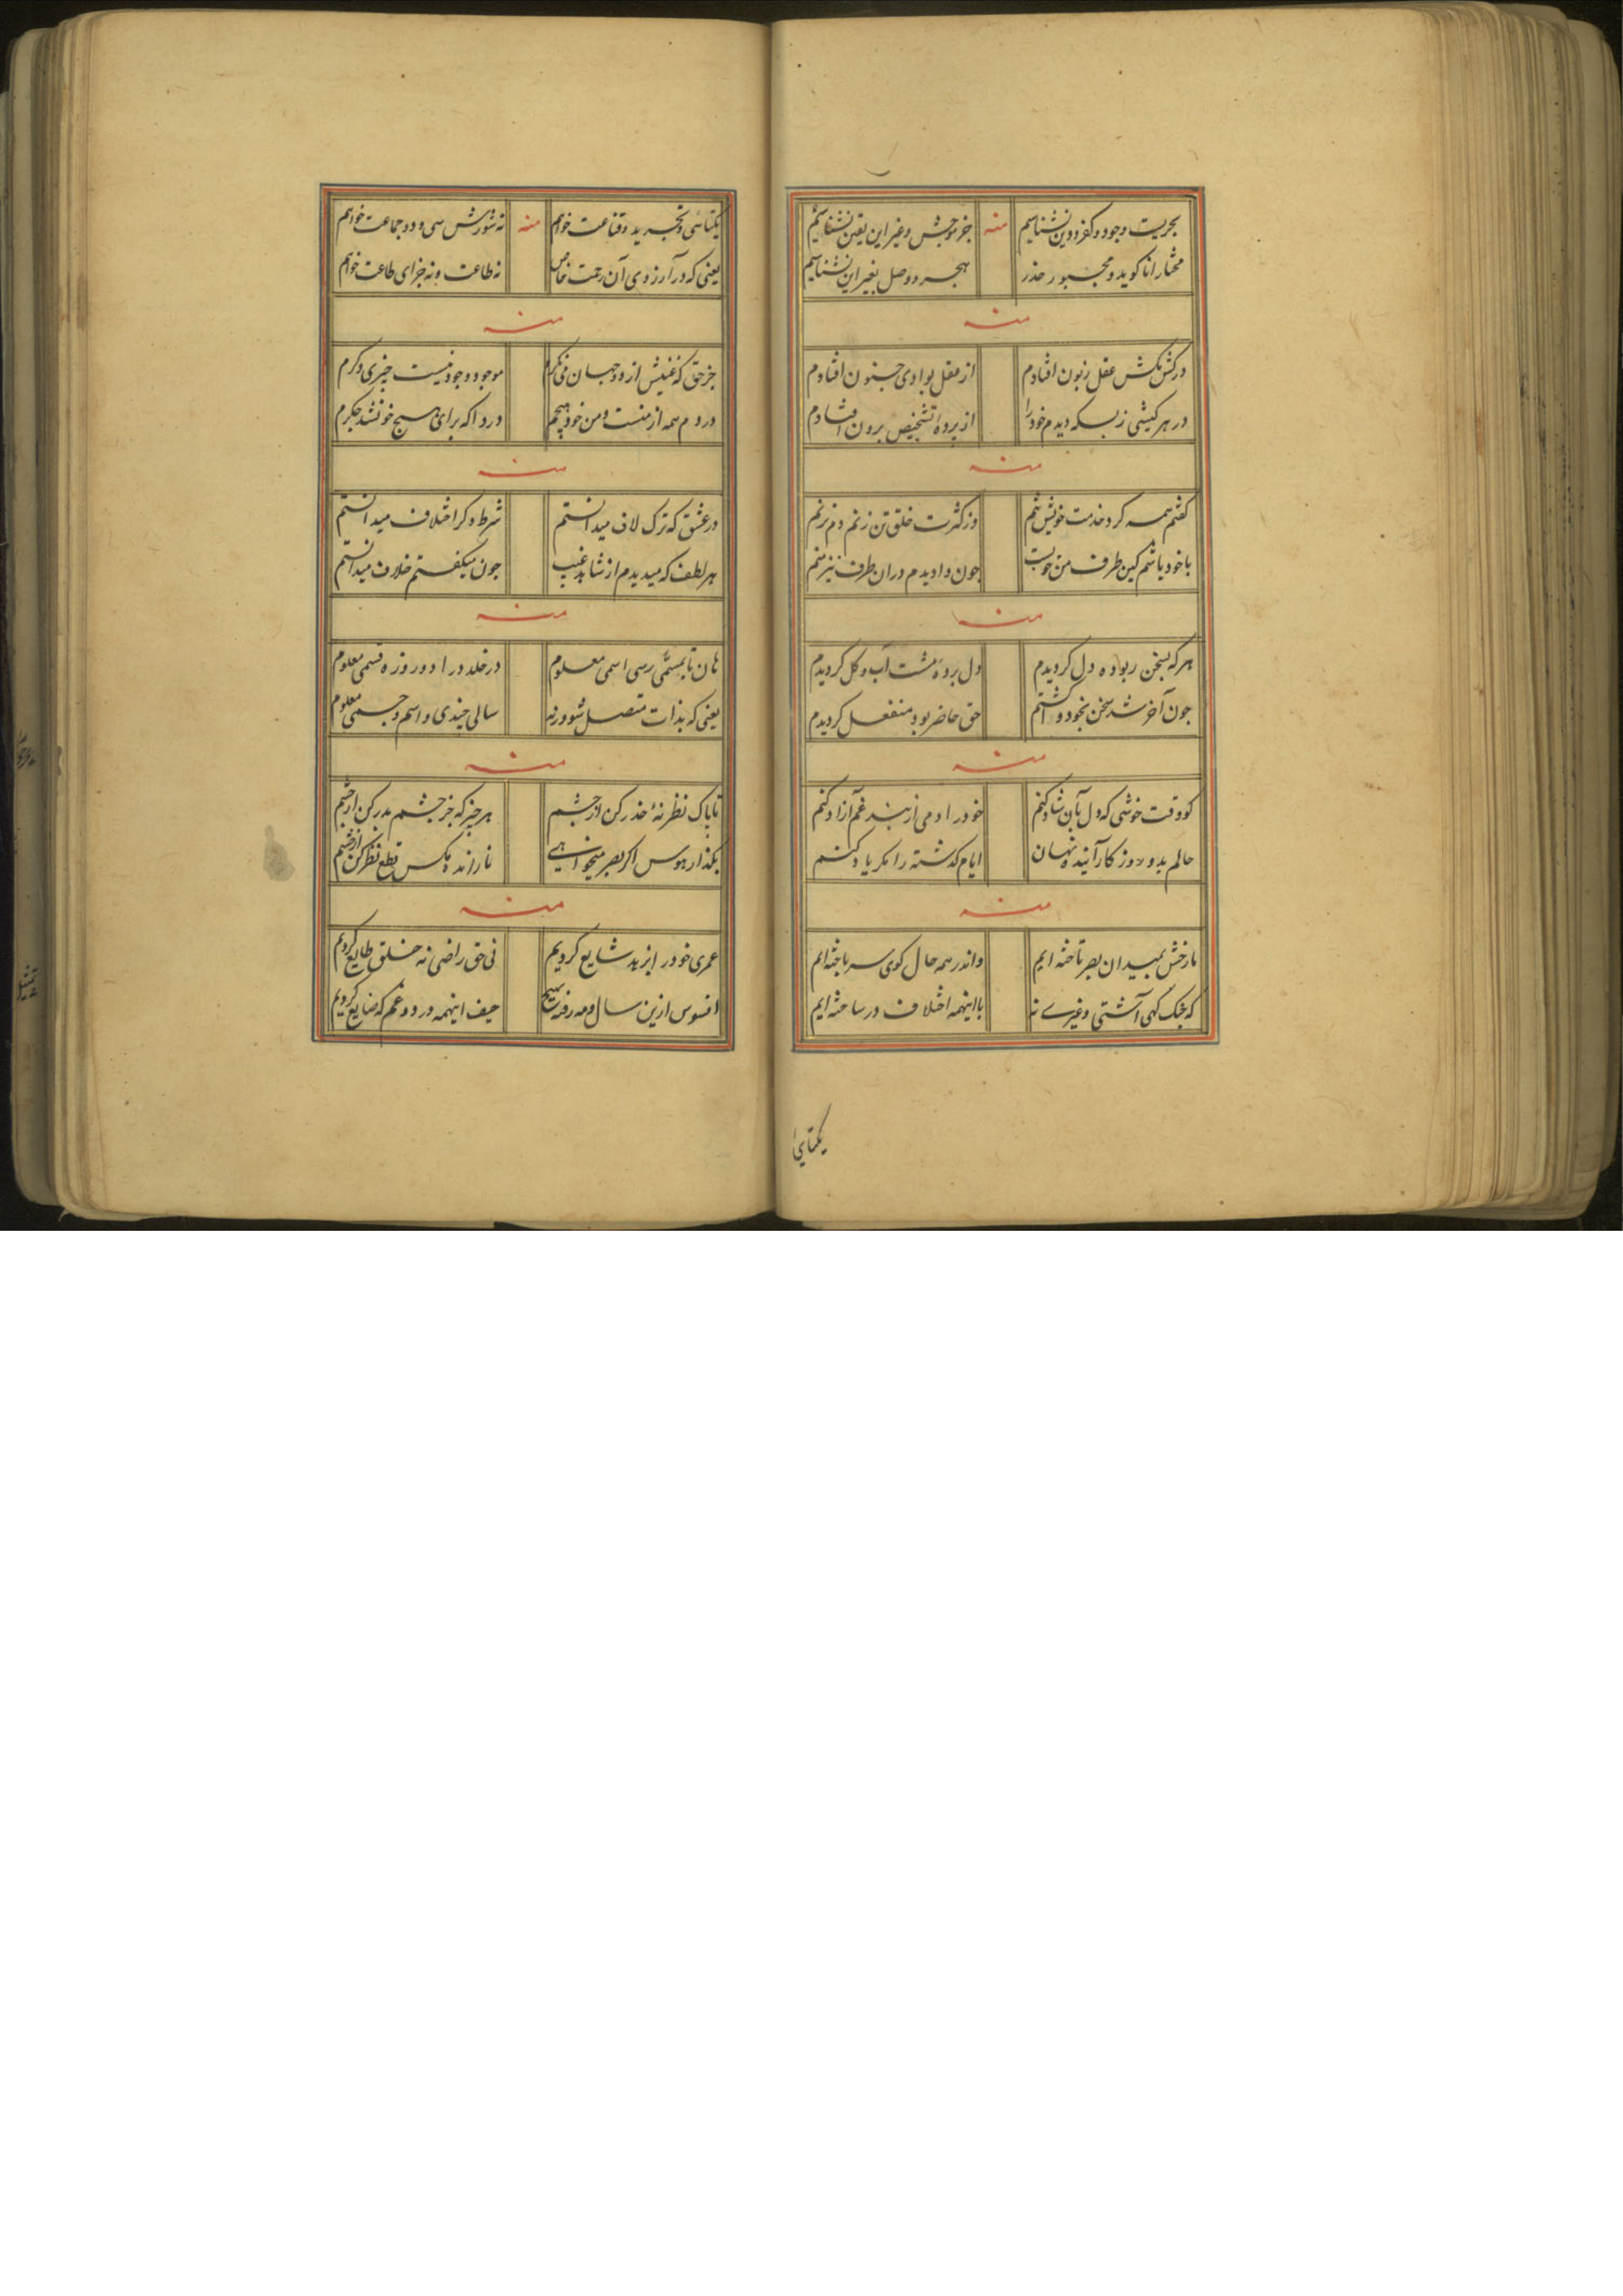 بحریست وجود و کفر و دین نشناسیم منه جز موجش و غیر این یقین نشناسیم
مختار انا کوید و مجبور حذر هجر و وصل بغیر این نشناسیم
منه
در کش مکش عقل زبون افتادم از عقل بوادی جنون افتادم
در هر کیشی ز بسکه دیدم خود را از پرده تشخیص برون افتادم
منه
کفتم همه کرد خدمت خویش تنم وز کثرت خلق تن زنم دم نزنم
با خود باشم کین طرف من خوبست جون وا دیدم دران طرف نیز منم
منه
هر که بسخن ربوده دل کردیدم دل برده مشت آب و کل کردیدم
جون آخر شد سخن بخود وا کشتم حق حاضر بود منفعل کردیدم
منه
کو وقت خوشی که دل بآن شاد کنم خود را دمی از بند غم آزاد کنم
حالم بد و روز کار آینده نهان ایام کذشته را مکر یاد کنم
منه
ما رخش بمیدان بصر تاخته ایم واندر همه حال کوی سر باخته ایم
که جنک کهی آشتی و غیری نه با اینهمه اختلاف در ساخته ایم
یکتایی
یکتائی و تجرید و قناعت خواهم منه نه شورش سی و دو جماعت خواهم
یعنی که در آرزوی آن رحمت خاص نه طاعت و نه جزای طاعت خواهم
منه
جز حق که غنیش از دو جهان می نکرم موجود و وجود نیست جیزی دکرم
دردم همه از منست و من خود هیچم دردا که برای هیچ خونشد جکرم
منه
در عشق که ترک لاف میدانستم شرط دکر اختلاف میدانستم
هر لطف که میدیدم از شاهد غیب جون میکفتم خلاف میدانستم
منه
هان تا بمسمی رسی اسمی معلوم در خلد در ا دو روزه قسمی معلوم
یعنی که بذات متصل شو ورنه سالی جندی و اسم و جسمی معلوم
منه
تا پاک نظر نهٔ حذر کن از جشم هر جیز که جز جشم بدر کن از جشم
بکذار هوس اکر بصر میخواهی تا رانده مکس قطع نظر کن از جشم
منه
عمری خود را بزهد شایع کردیم نی حق راضی نه خلق طایع کردیم
افسوس ازین سال و مه رفته بهیج حیف اینهمه درد و غم که ضایع کردیم